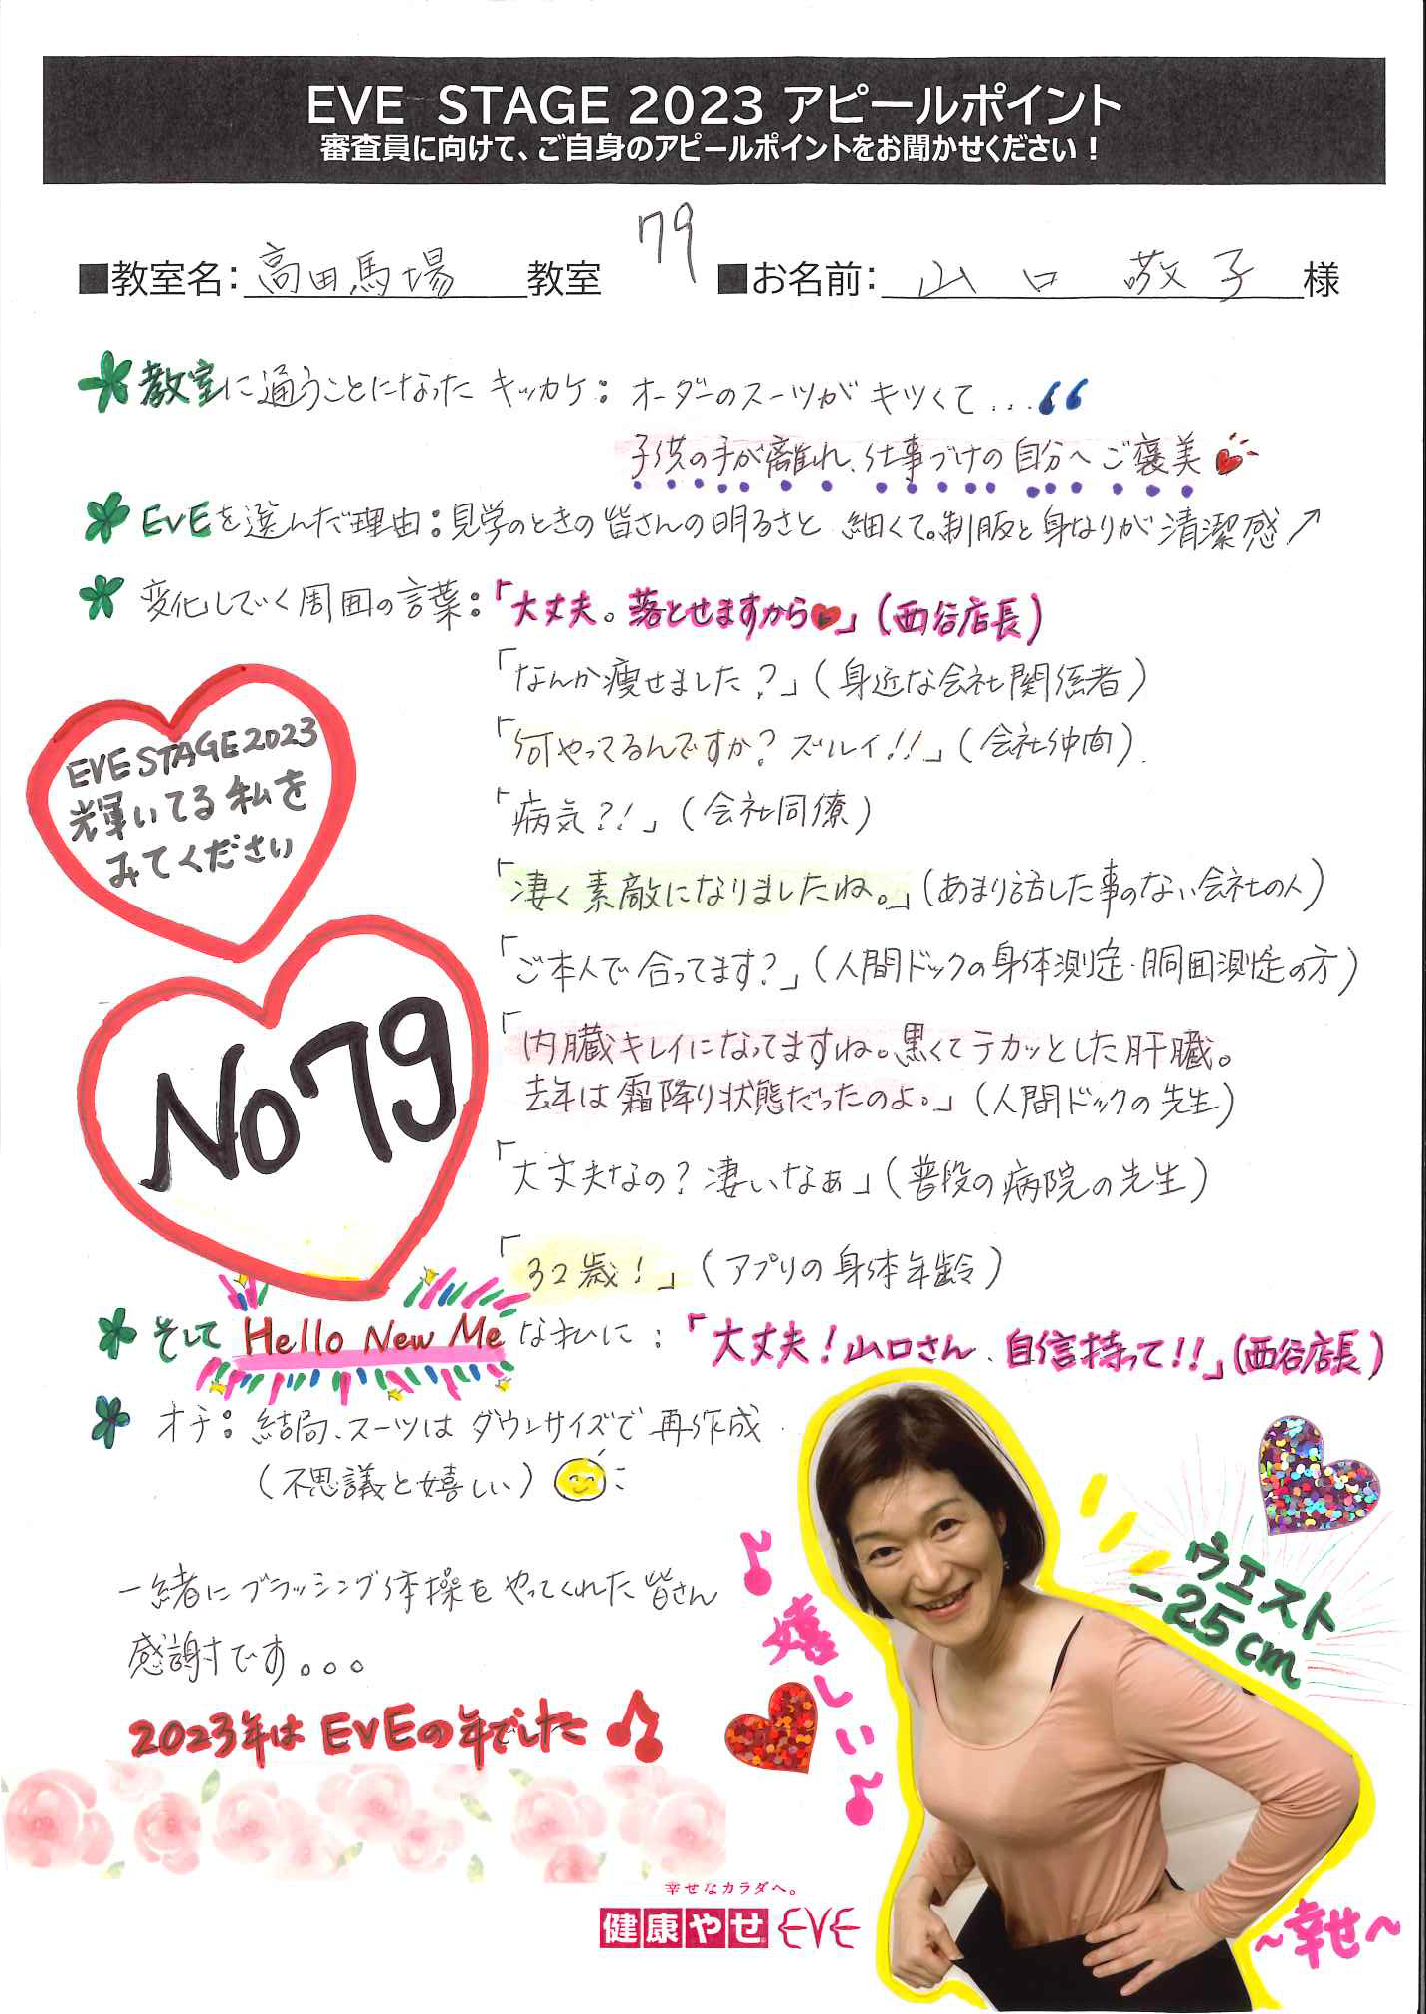 EVE STAGE 2023 アピールポイント
審査員に向けて、ご自身のアピールポイントをお聞かせください！
79
■教室名：高田馬場教室 ■お名前：山口 敬子 様
教室に通うことになったキッカケ：オーダーのスーツがキツくて...
子供の手が離れ、仕事づけの自分へご褒美
EVEを選んだ理由：見学のときの皆さんの明るさと細くて。制服と身なりが清潔感↗
変化していく周囲の言葉：「大丈夫。落とせますから♥」（西谷店長）
「なんか痩せました？」（身近な会社関係者）
「何やってるんですか？ズルイ!!」（会社仲間）
「病気?!」（会社同僚）
「凄く素敵になりましたね。」（あまり話した事のない会社の人）
「ご本人で合ってます？」（人間ドックの身体測定・胴囲測定の方）
「内臓キレイになってますね。黒くてテカッとした肝臓。
去年は霜降り状態だったのよ。」（人間ドックの先生）
「大丈夫なの？凄いなぁ」（普段の病院の先生）
「32歳！」（アプリの身体年齢）
EVE STAGE 2023
輝いてる私を
みてください
No79
そして Hello New Me な私に：「大丈夫！山口さん、自信持って!!」（西谷店長）
オチ：結局、スーツはダウンサイズで再作成
（不思議と嬉しい）
一緒にブラッシング体操をやってくれた皆さん
感謝です。。。
2023年はEVEの年でした♪
♪嬉しい♪
ウエスト
-25cm
～幸せ～
幸せなカラダへ。
健康やせ EVE